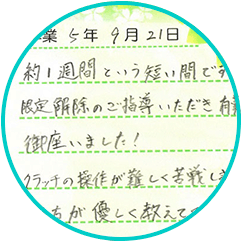 業 5年 9月 21日
約1週間という短い間です
限定解除のご指導いただき有
御座いました!
クラッチの操作が難しく苦戦しま
ちが優しく教えて